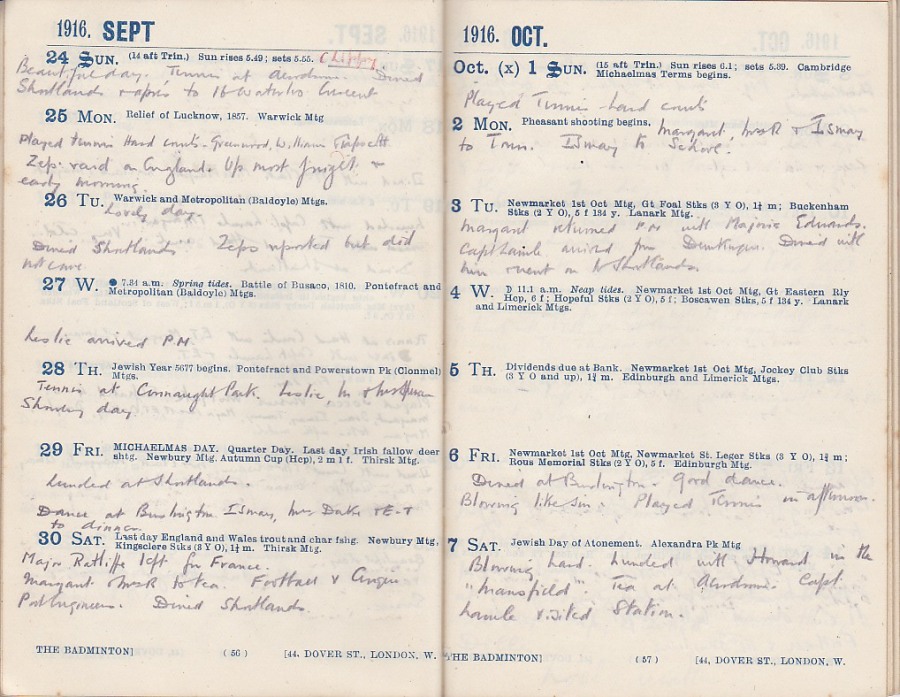 1916. SEPT
24 SUN. (14 aft Trin.) Sun rises 5.49; sets 5.55.
Beautiful day. Tennis at aerodrome. Dined
Shortlands & après to 16 Waterloo Crescent
25 MON. Relief of Lucknow, 1857. Warwick Mtg
Played tennis Hard Courts - Greenwood, Williams
Zep: raid on England. Up most of night &
early morning.
26 TU. Warwick and Metropolitan (Baldoyle) Mtgs.
Lovely day.
Dined Shortlands. Zeps reported but did
not come.
27 W. ● 7.34 a.m. Spring tides. Battle of Busaco, 1810. Pontefract and
Metropolitan (Baldoyle) Mtgs.
Leslie arrived P.M.
28 TH. Jewish Year 5677 begins. Pontefract and Powerstown Pk (Clonmel)
Mtgs.
Tennis at Connaught Park. Leslie,
Showery day.
29 FRI. MICHAELMAS DAY. Quarter Day. Last day Irish fallow deer
shtg. Newbury Mtg. Autumn Cup (Hcp), 2 m 1 f. Thirsk Mtg.
Lunched at Shortlands.
Dance at Burlington Ismay, Mrs
to dinner.
30 SAT. Last day England and Wales trout and char fshg. Newbury Mtg,
Kingsclere Stks (3 Y O), 1¼ m. Thirsk Mtg.
Major Ratliffe left for France.
Margaret to tea. Football v
Dined Shortlands.
THE BADMINTON] (56) [44, DOVER ST., LONDON, W.
1916. OCT.
Oct. (x) 1 SUN. (15 aft Trin.) Sun rises 6.1; sets 5.39. Cambridge
Michaelmas Terms begins.
Played Tennis - hard courts
2 MON. Pheasant shooting begins.
Margaret, & Ismay
to Town. Ismay to
3 TU. Newmarket 1st Oct Mtg, Gt Foal Stks (3 Y O), 1¼ m; Buckenham
Stks (2 Y O), 5 f 134 y. Lanark Mtg.
Margaret returned P.M. with Marjorie Edwards.
Capt Lambe arrived from Dunkerque. Dined with
him & went on to Shortlands.
4 W. ☽ 11.1 a.m. Neap tides. Newmarket 1st Oct Mtg, Gt Eastern Rly
Hcp, 6 f; Hopeful Stks (2 Y O), 5 f; Boscawen Stks, 5 f 134 y. Lanark
and Limerick Mtgs.
5 TH. Dividends due at Bank. Newmarket 1st Oct Mtg, Jockey Club Stks
(3 Y O and up), 1¾ m. Edinburgh and Limerick Mtgs.
6 FRI. Newmarket 1st Oct Mtg, Newmarket St. Leger Stks (3 Y O), 1¾ m;
Rous Memorial Stks (2 Y O), 5 f. Edinburgh Mtg.
Dined at Burlington. Good dance.
Blowing like sin. Played Tennis in afternoon.
7 SAT. Jewish Day of Atonement. Alexandra Pk Mtg
Blowing hard. Lunched with Howard in the
"Mansfield". Tea at Aerodrome Capt.
Lambe visited Station.
THE BADMINTON] (57) [44, DOVER ST., LONDON, W.